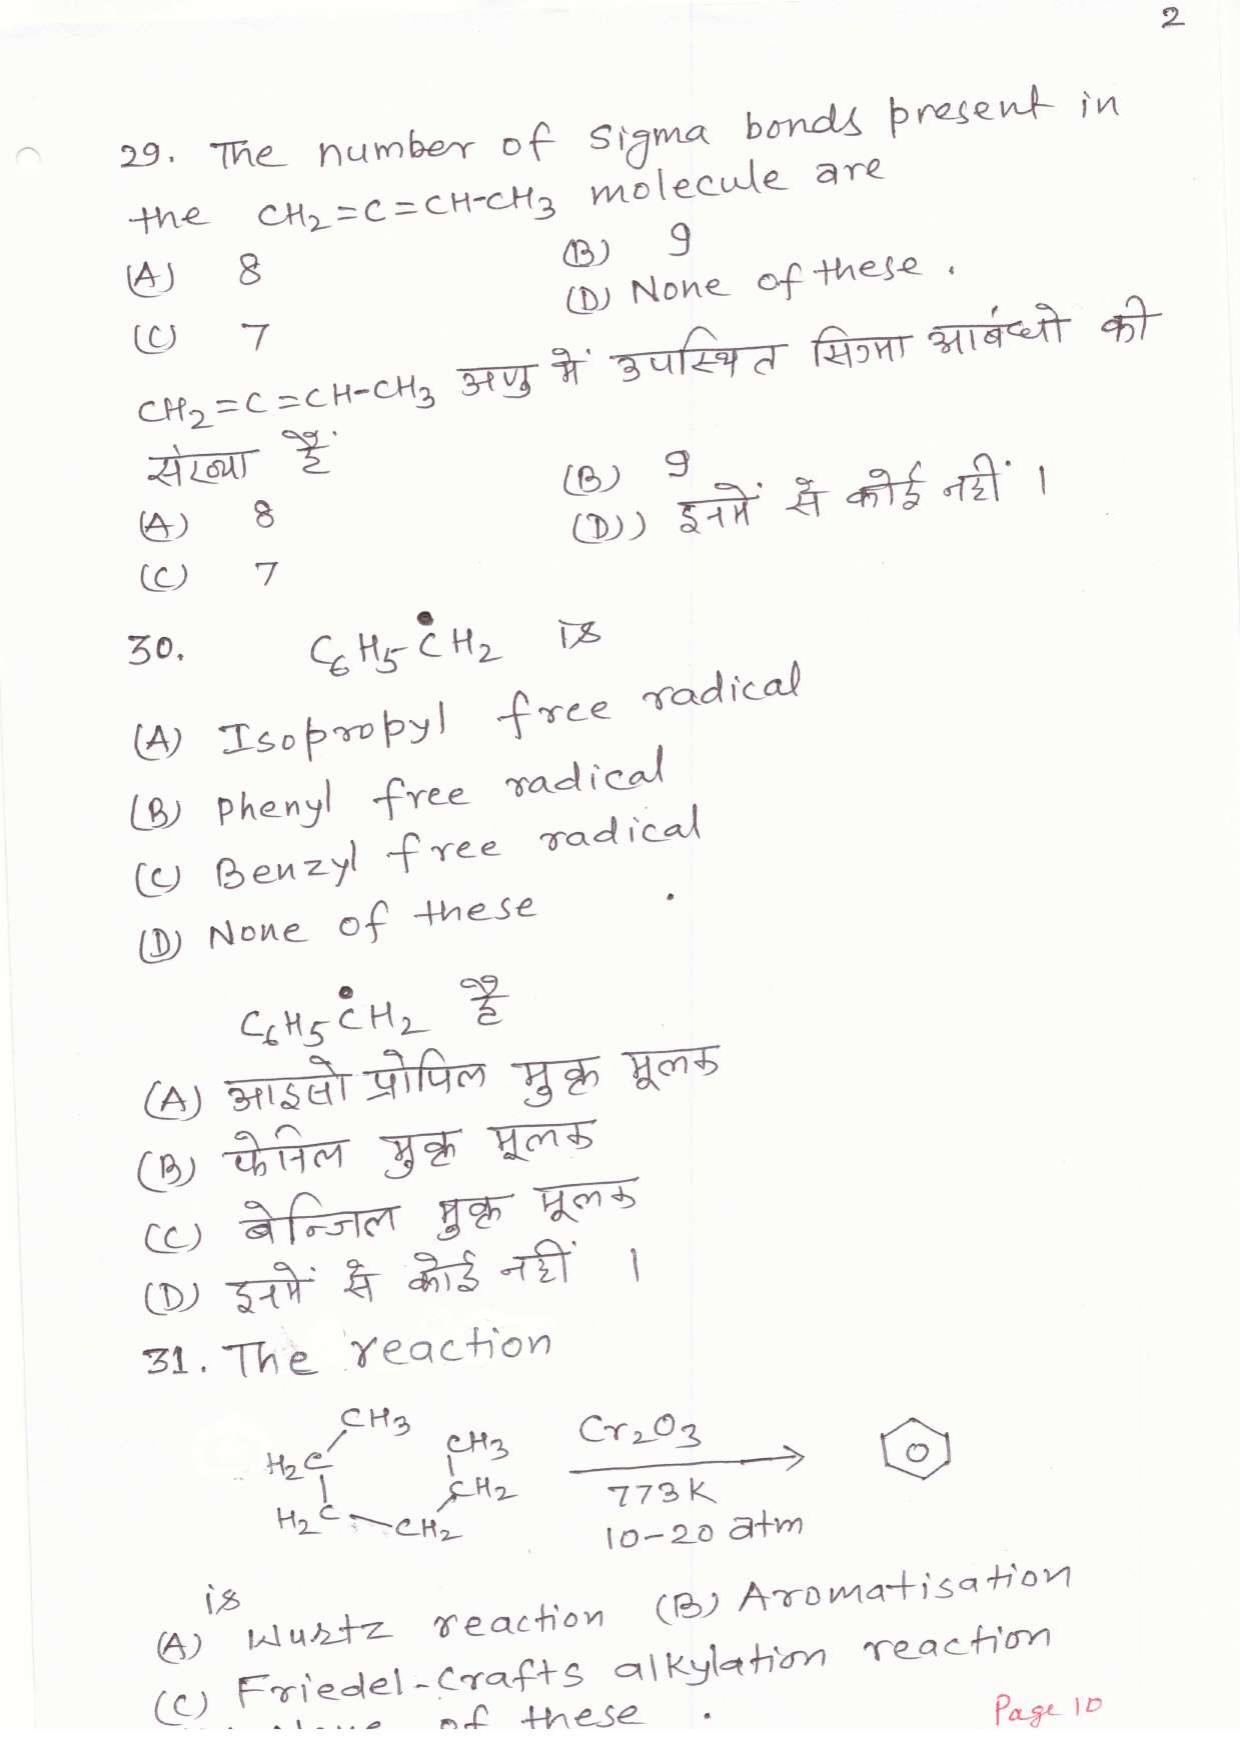 2
29. The number of sigma bonds present in
the CH2=C=CH-CH3 molecule are
(A) 8 (B) 9
(C) 7 (D) None of these.
CH2=C=CH-CH3 अणु में उपस्थित सिग्मा आबंधो की
संख्या हैं
(A) 8 (B) 9
(C) 7 (D)) इनमें से कोई नहीं ।
30. C6H5ĊH2 is
(A) Isopropyl free radical
(B) Phenyl free radical
(C) Benzyl free radical
(D) None of these
C6H5ĊH2 है
(A) आइसो प्रोपिल मुक्त मूलक
(B) फेनिल मुक्त मूलक
(C) बेन्जिल मुक्त मूलक
(D) इनमें से कोई नहीं ।
31. The reaction
CH3
H2C CH3 Cr2O3
CH2 773K
H2C CH2 10-20 atm
is
(A) Wurtz reaction (B) Aromatisation
(C) Friedel-Crafts alkylation reaction
of these .
Page 10